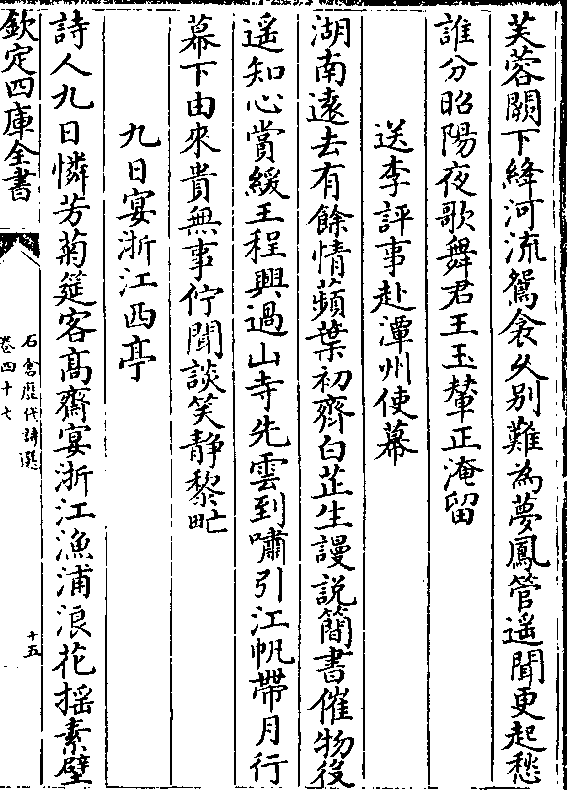 芙蓉闕下絳河流鴛衾久别難為夢鳳管遥聞更起愁
誰分昭陽夜歌舞君王玉輦正淹留
送李評事赴潭州使幕
湖南逺去有餘情蘋葉初齊白芷生謾説簡書催物役
遥知心賞緩王程興過山寺先雲到嘯引江帆帶月行
幕下由來貴無事佇聞談笑静黎甿
九日宴浙江西亭
詩人九日憐芳菊筵客髙齋宴浙江漁浦浪花揺素壁
欽定四庫全書
石倉歴代詩選
卷四十七
十五